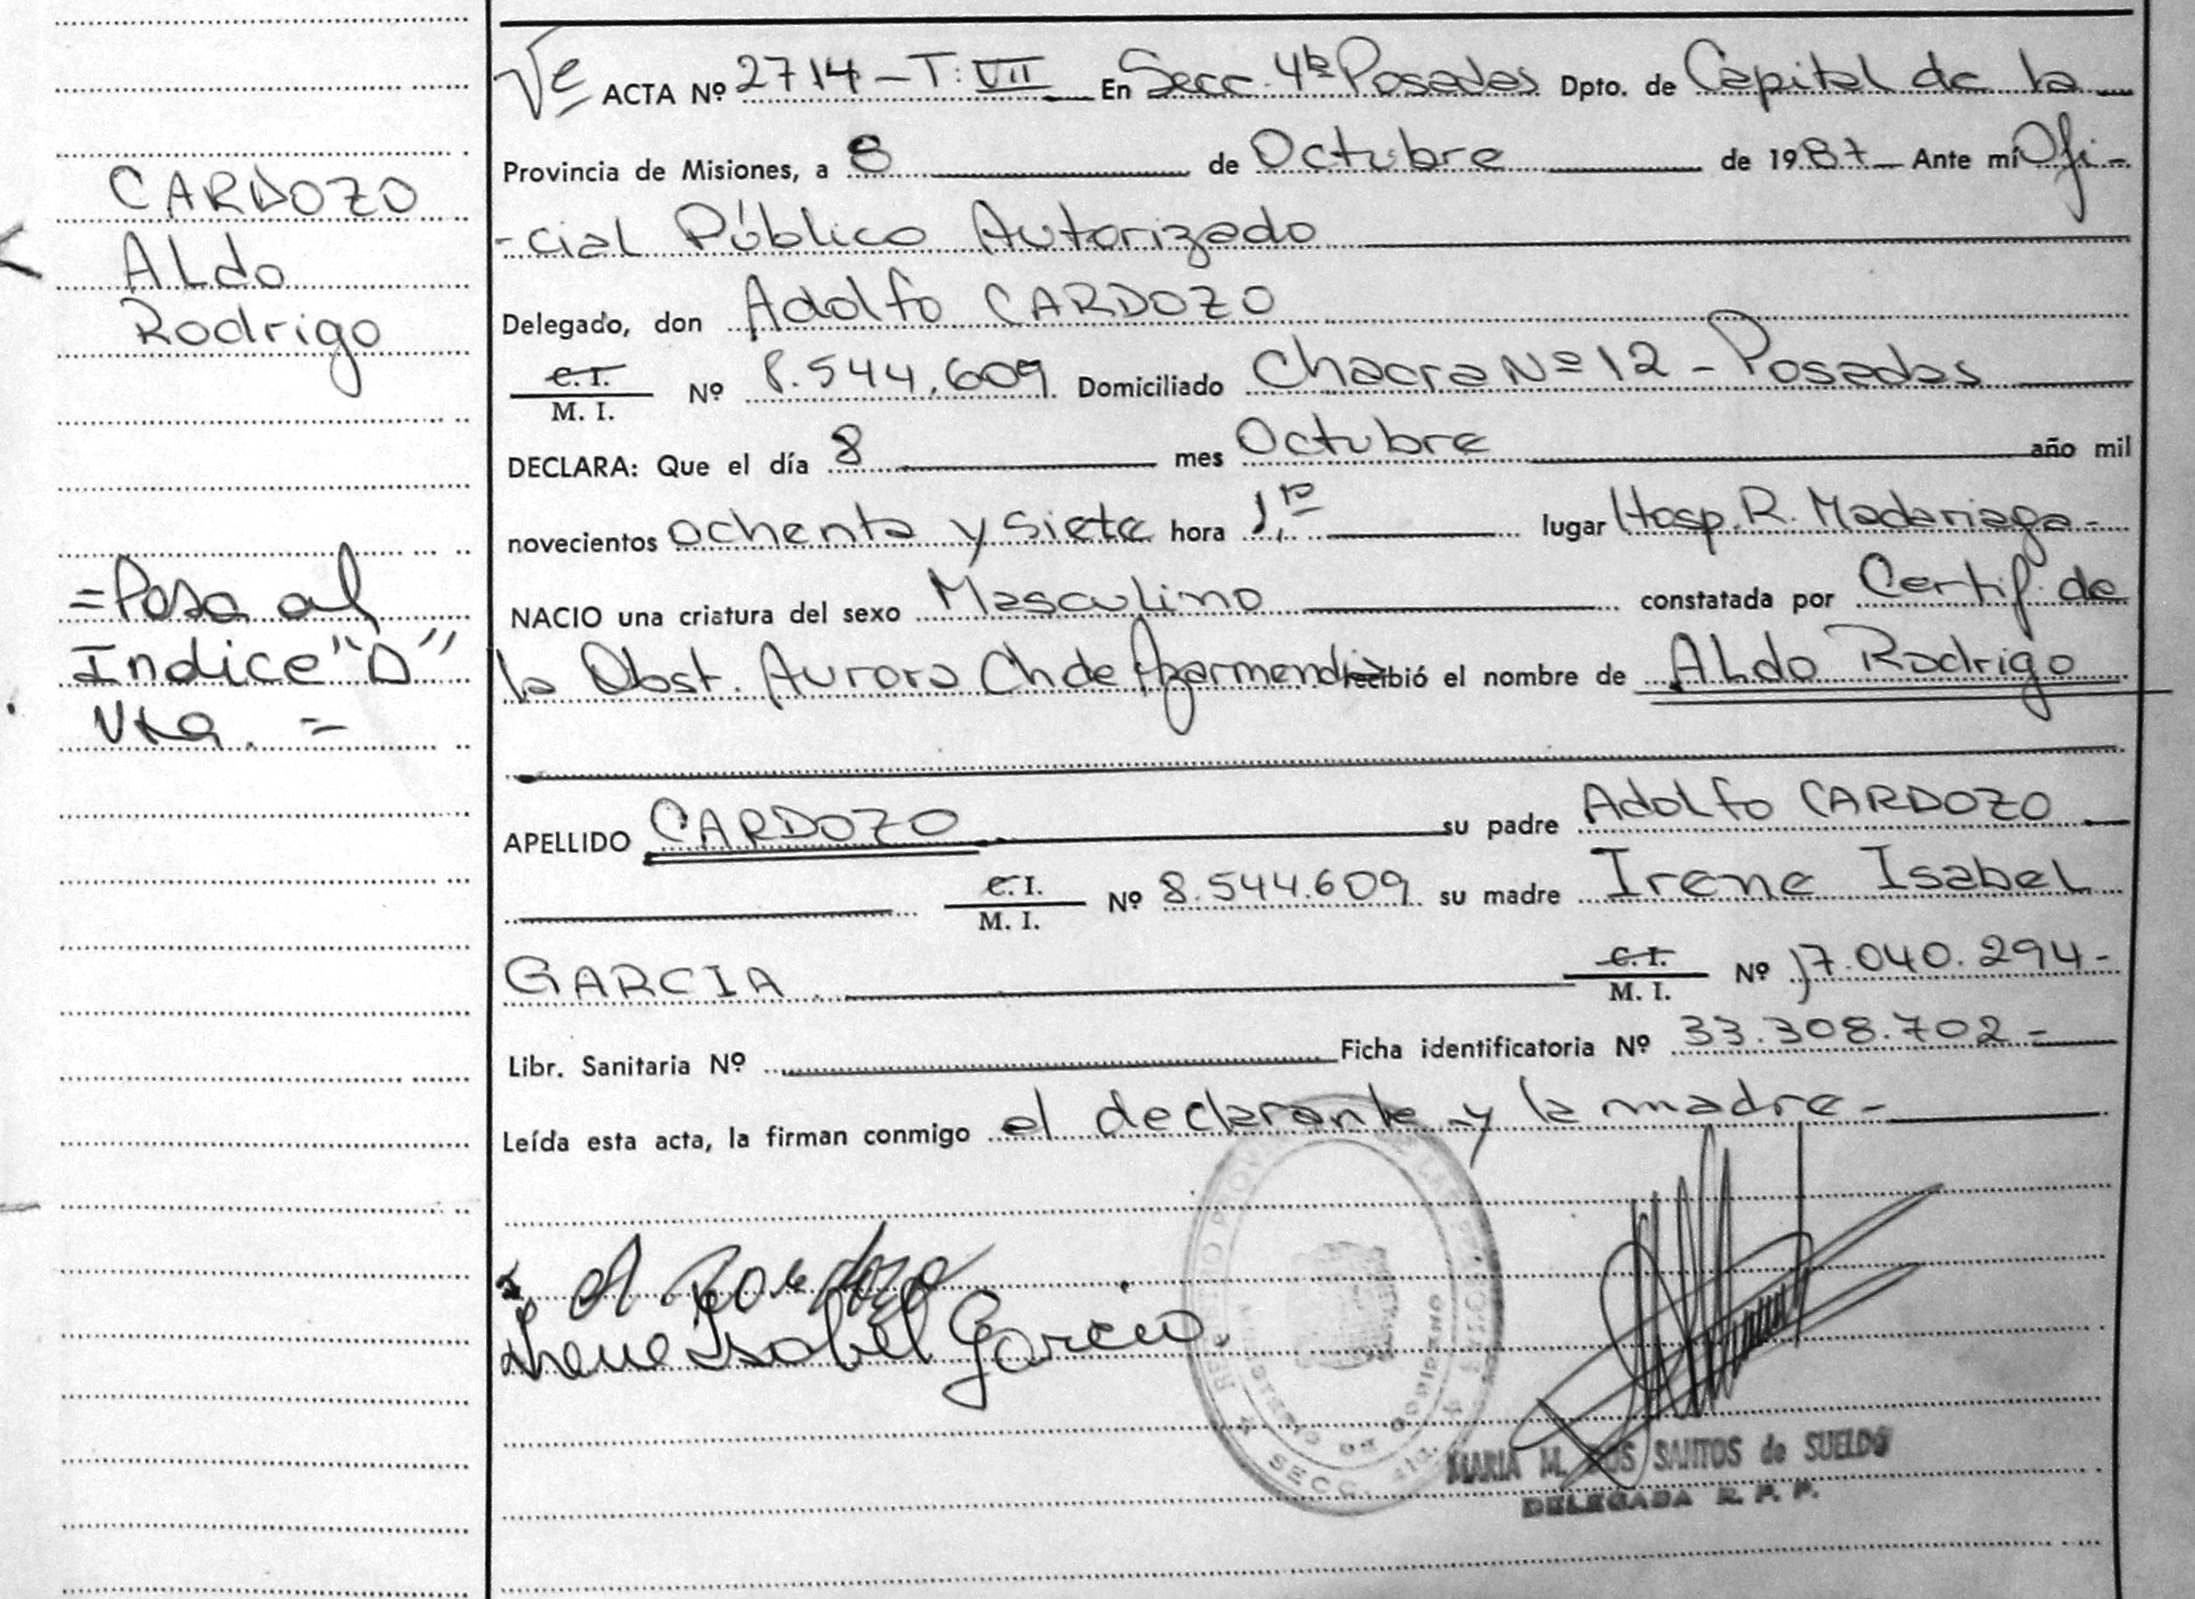 CARDOZO
ALdo
Rodrigo
=Pasa al
Indice "D"
Vta. =
ACTA Nº 2714 - T: VII En Secc. 4ta Posadas Dpto. de Capital de la
Provincia de Misiones, a 8 de Octubre de 1987 Ante mí Ofi-
-cial Público Autorizado
Delegado, don Adolfo CARDOZO
C. I.
M. I. Nº 8.544.609 Domiciliado Chacra Nº 12 - Posadas
DECLARA: Que el día 8 mes Octubre año mil
novecientos ochenta y siete hora 1,10 lugar Hosp. R. Madariaga-
NACIO una criatura del sexo Masculino constatada por Certif. de
la Obst. Aurora Ch de Azarmendia recibió el nombre de ALdo Rodrigo
APELLIDO CARDOZO su padre Adolfo CARDOZO
C. I.
M. I. Nº 8.544.609 su madre Irene Isabel
GARCIA C. I.
M. I. Nº 17.040.294-
Libr. Sanitaria Nº Ficha identificatoria Nº 33.308.702=
Leída esta acta, la firman conmigo el declarante y la madre-
A Cardozo
Irene Isabel Garcia
SECC. 4ta.
MARIA M. DOS SANTOS de SUELDO
DELEGADA R. P. P.